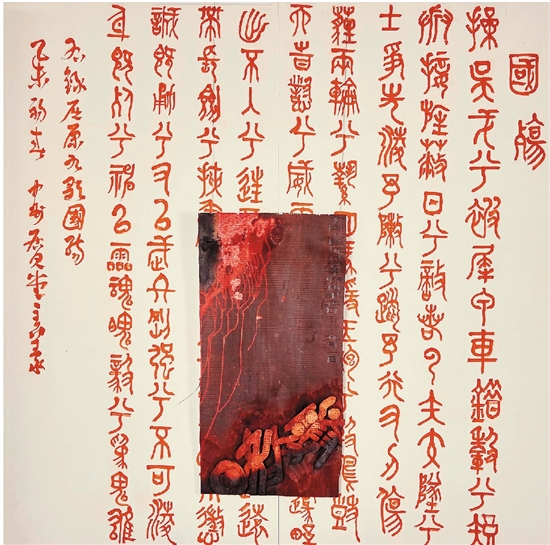 國殤
操吳戈兮被犀甲車錯轂兮短
兵接旌蔽日兮敵若雲矢交墜兮
士爭先凌予陣兮躐予行右刃傷
霾兩輪兮縶四馬援玉枹兮擊鳴鼓
天時懟兮威
出不入兮往 超遠
帶長劍兮挾 不懲
誠既勇兮又以武終剛強兮不可凌
身既死兮神以靈魂魄毅兮為鬼雄
右錄屈原九歌國殤
乙未初春 中州